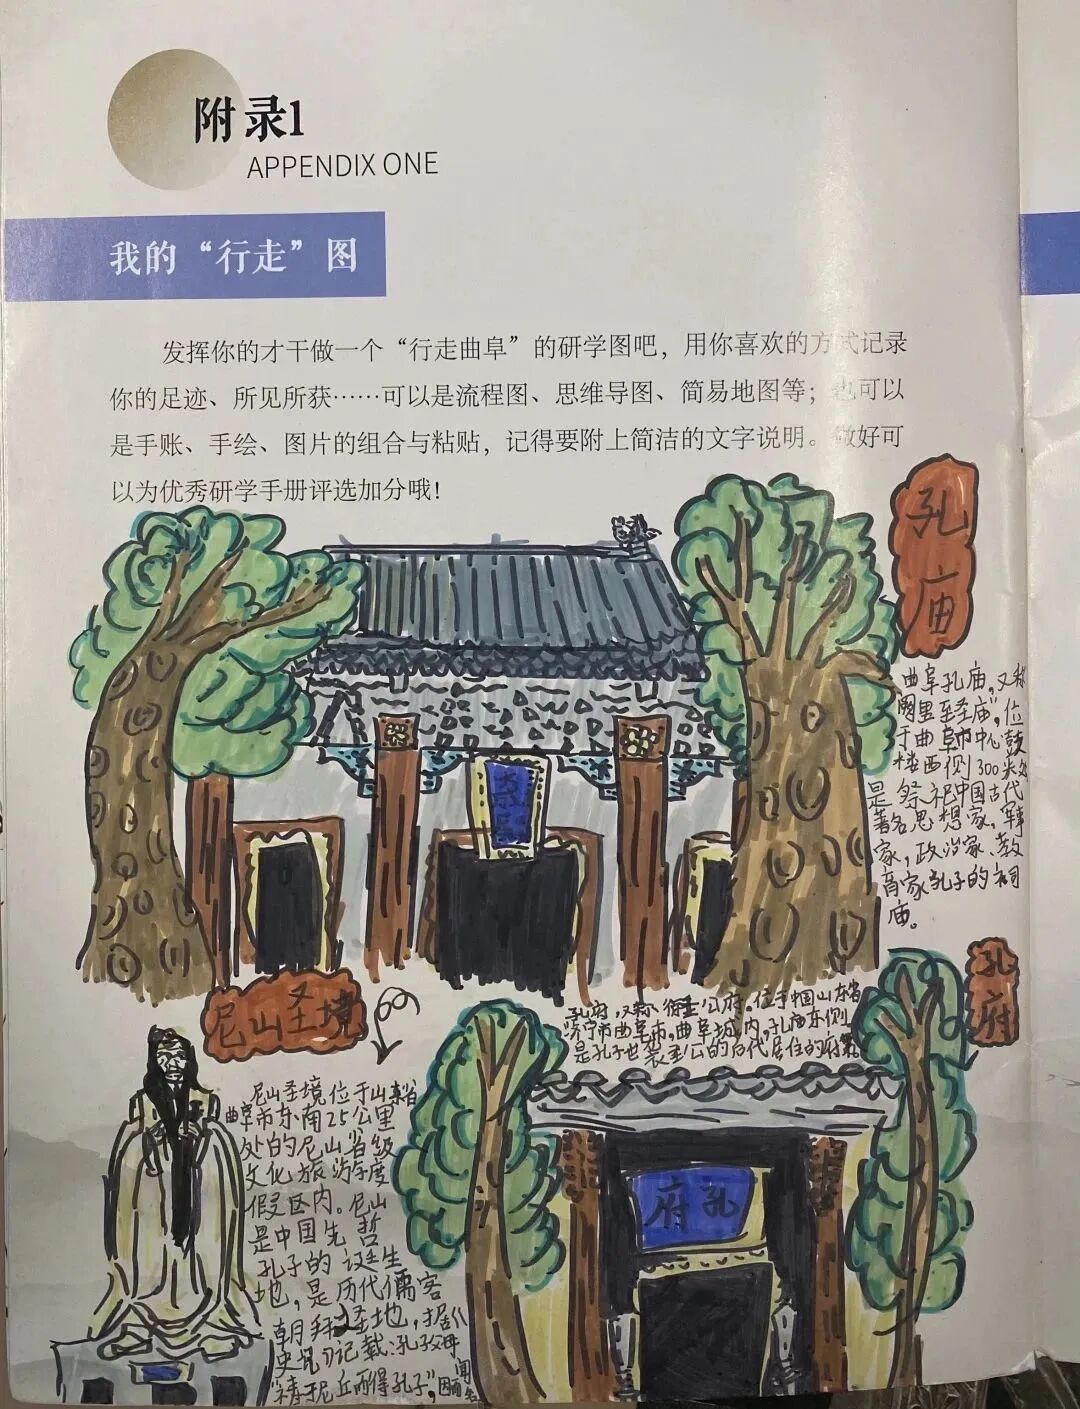 附录1
APPENDIX ONE
我的“行走”图
发挥你的才干做一个“行走曲阜”的研学图吧，用你喜欢的方式记录
你的足迹、所见所获……可以是流程图、思维导图、简易地图等；也可以
是手账、手绘、图片的组合与粘贴，记得要附上简洁的文字说明。做好可
以为优秀研学手册评选加分哦！
孔
庙
曲阜孔庙，又称
阙里至圣庙”，位
于曲阜市中心鼓
楼西侧300米处
是祭祀中国古代
著名思想家，军事
家，政治家、教
育家孔子的祠
庙。
孔
府
孔府，又称衍圣公府。位于中国山东省
济宁市曲阜市，曲阜城内，孔庙东侧
是孔子世袭圣公的后代居住的府
府孔
尼山圣境
尼山圣境位于山东省
曲阜市东南25公里
处的尼山省级
文化旅游度
假区内。尼山
是中国先哲
孔子的诞生
地，是历代儒客
朝拜圣地，据《
史记》记载：孔子父母
“祷于尼丘而得孔子”，因而闻
名